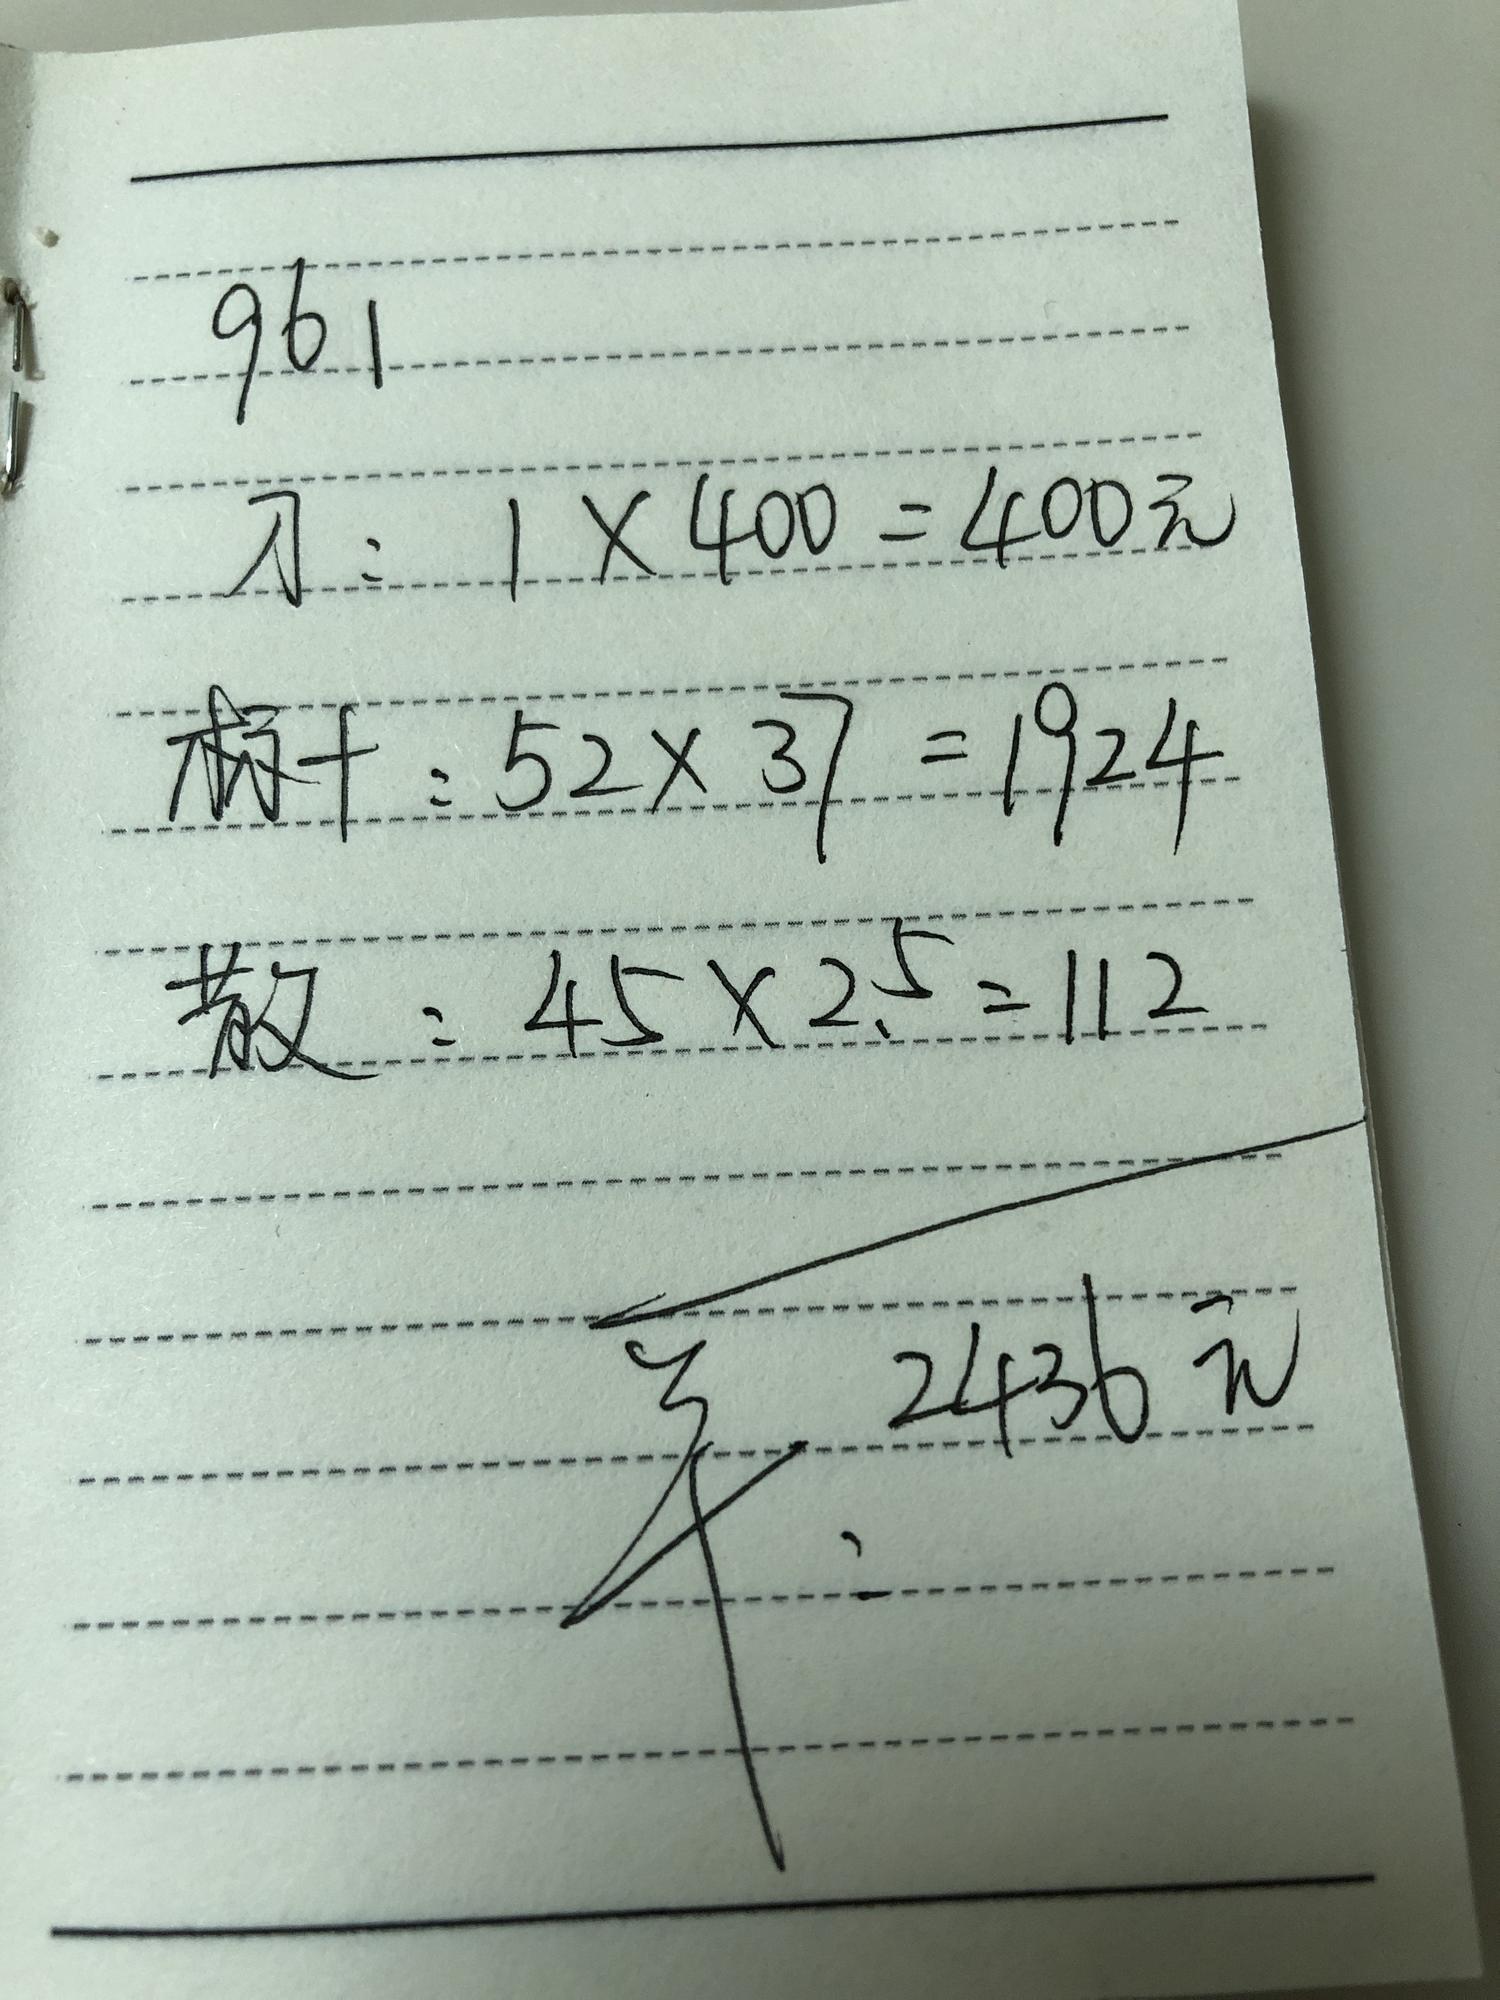 961
刀: 1×400=400元
标十: 52×37=1924
散: 45×2.5=112
2436元